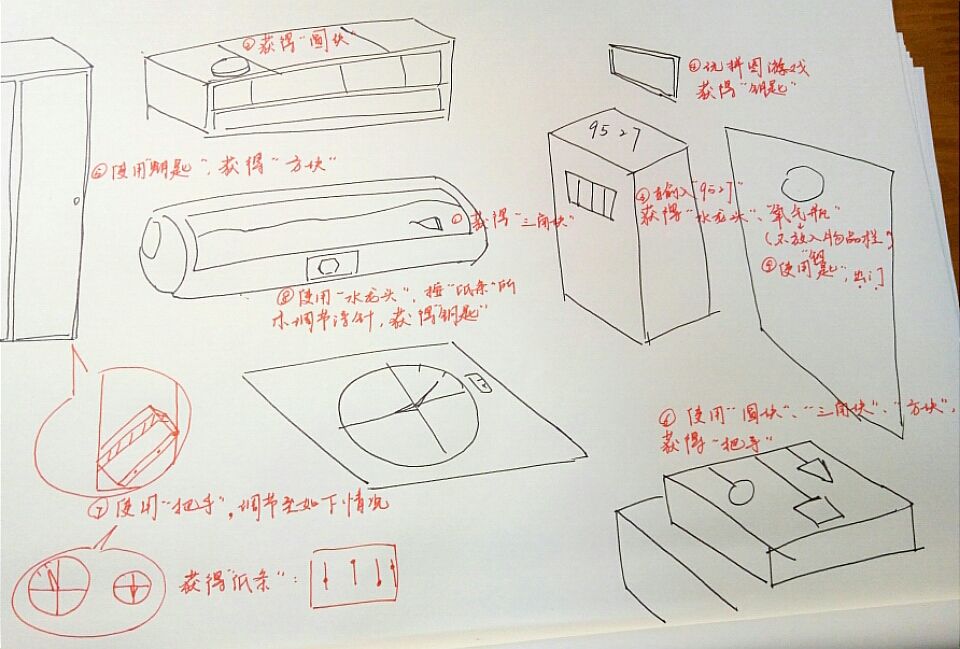 ②获得"圆块"
④玩拼图游戏
获得"钥匙"
9527
⑤使用"钥匙",获得"方块"
③输入"9527"
获得"水龙头"、"氧气瓶"
(不放入物品栏)
①获得"三角块"
⑨使用"钥匙",出门
⑧使用"水龙头",按"纸条"所
示调节浮针,获得"钥匙"
⑥使用"圆块"、"三角块"、"方块",
获得"把手"
⑦使用"把手",调节至如下情况
获得"纸条":